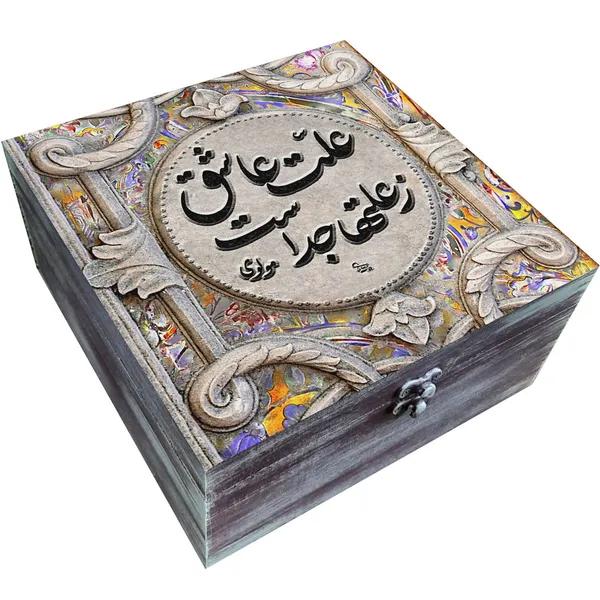 علّت عاشق
ز علتها جداست
مولوی